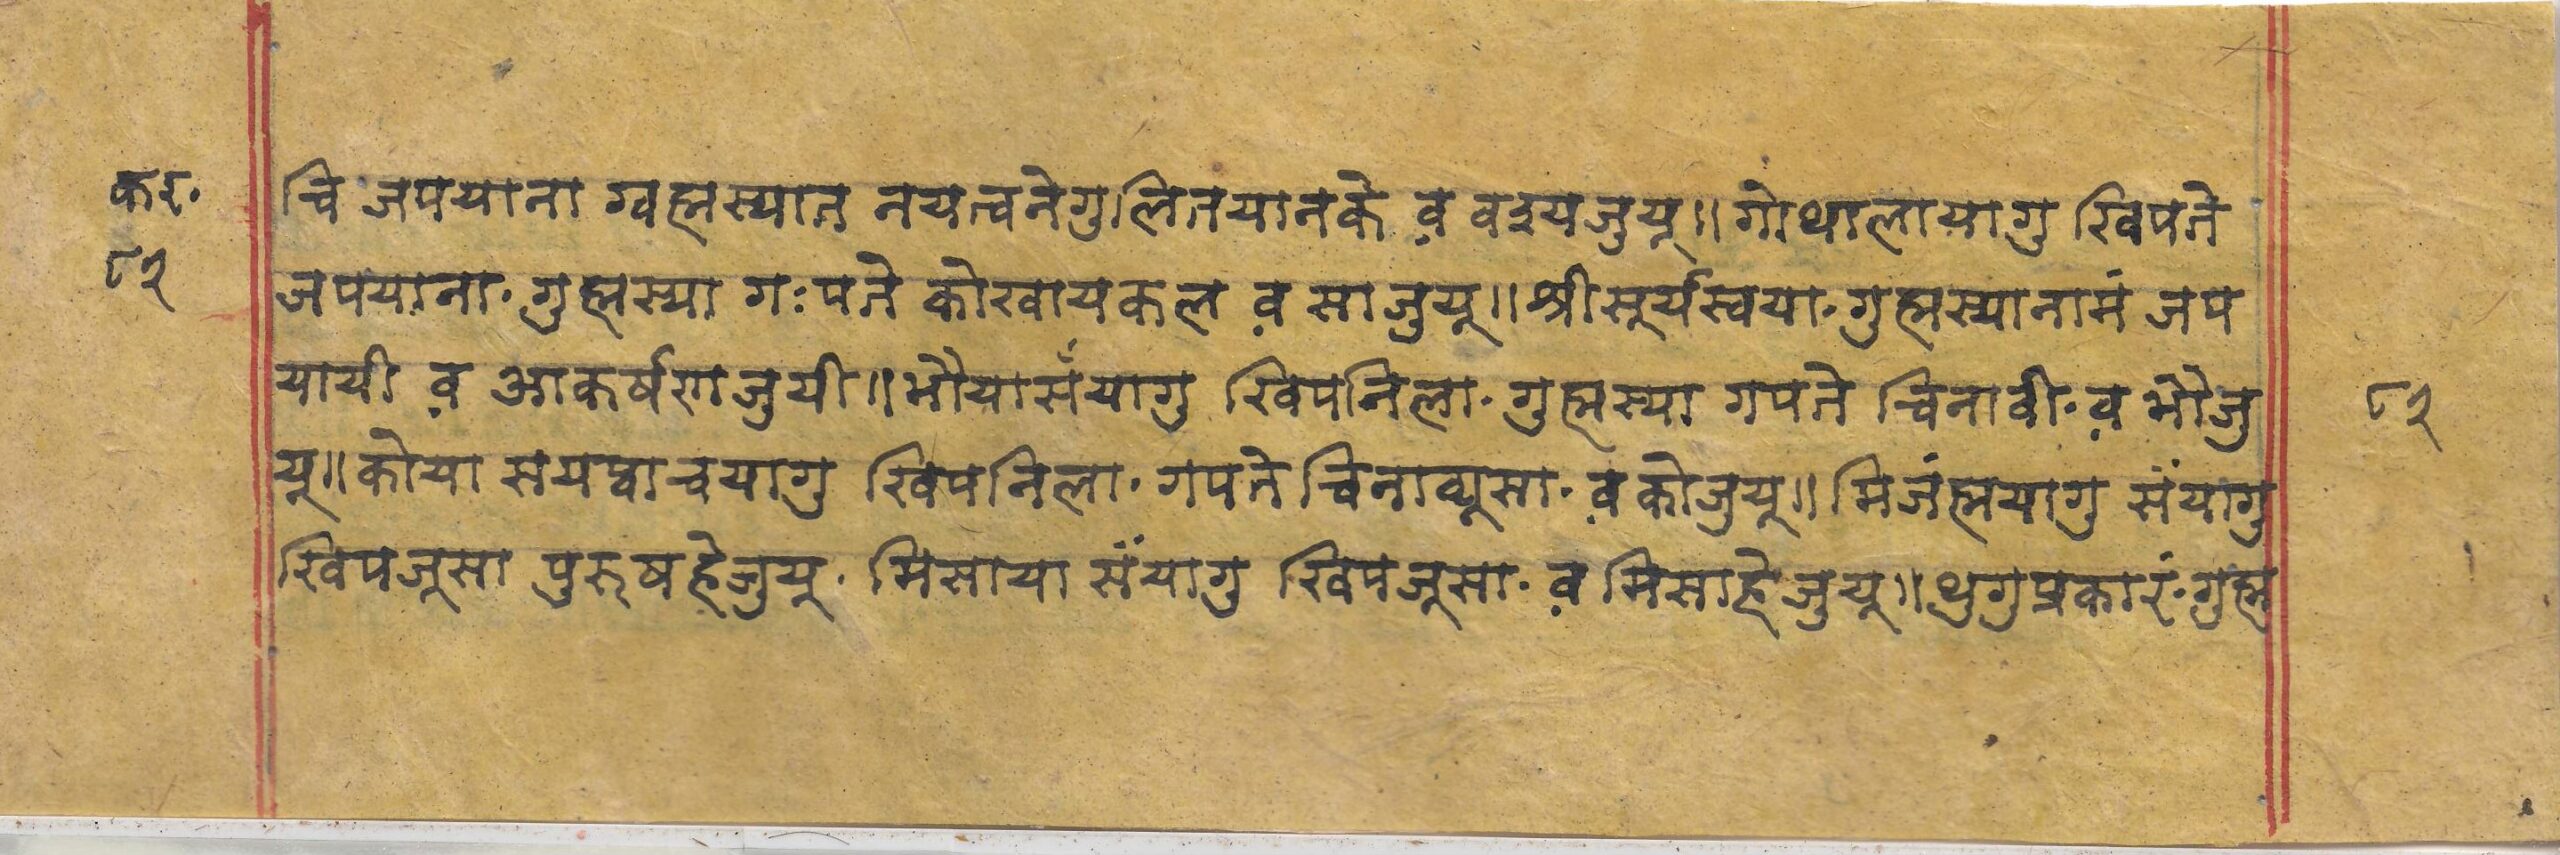 कर॰ चि जपयाना ग्वह्मस्यात नयत्वनेगुलितयानके व़ वश्यजुयू॥ गोथालायागु खिपते
८२ जपयाना॰ गुह्मस्या गःपते कोखायकल व़ साजुयू॥ श्रीसूर्यस्वया॰ गुह्मस्यानामं जप
यायी व़ आकर्षणजुयी॥ भौयासँयागु खिपनिला॰ गुह्मस्या गपते चिनावी॰ व़ भौजु ८२
यू॥ कोया सयप्वाचयागु खिपनिला॰ गपते चिनाव्यूसा॰ व़ कोजुयू॥ मिजंह्मयागु सँयागु
खिपजूसा पुरुषहेजुयू॰ मिसाया सँयागु खिपजूसा॰ व़ मिसाहेजुयू॥ थुगुप्रकारं॰ गुह्म